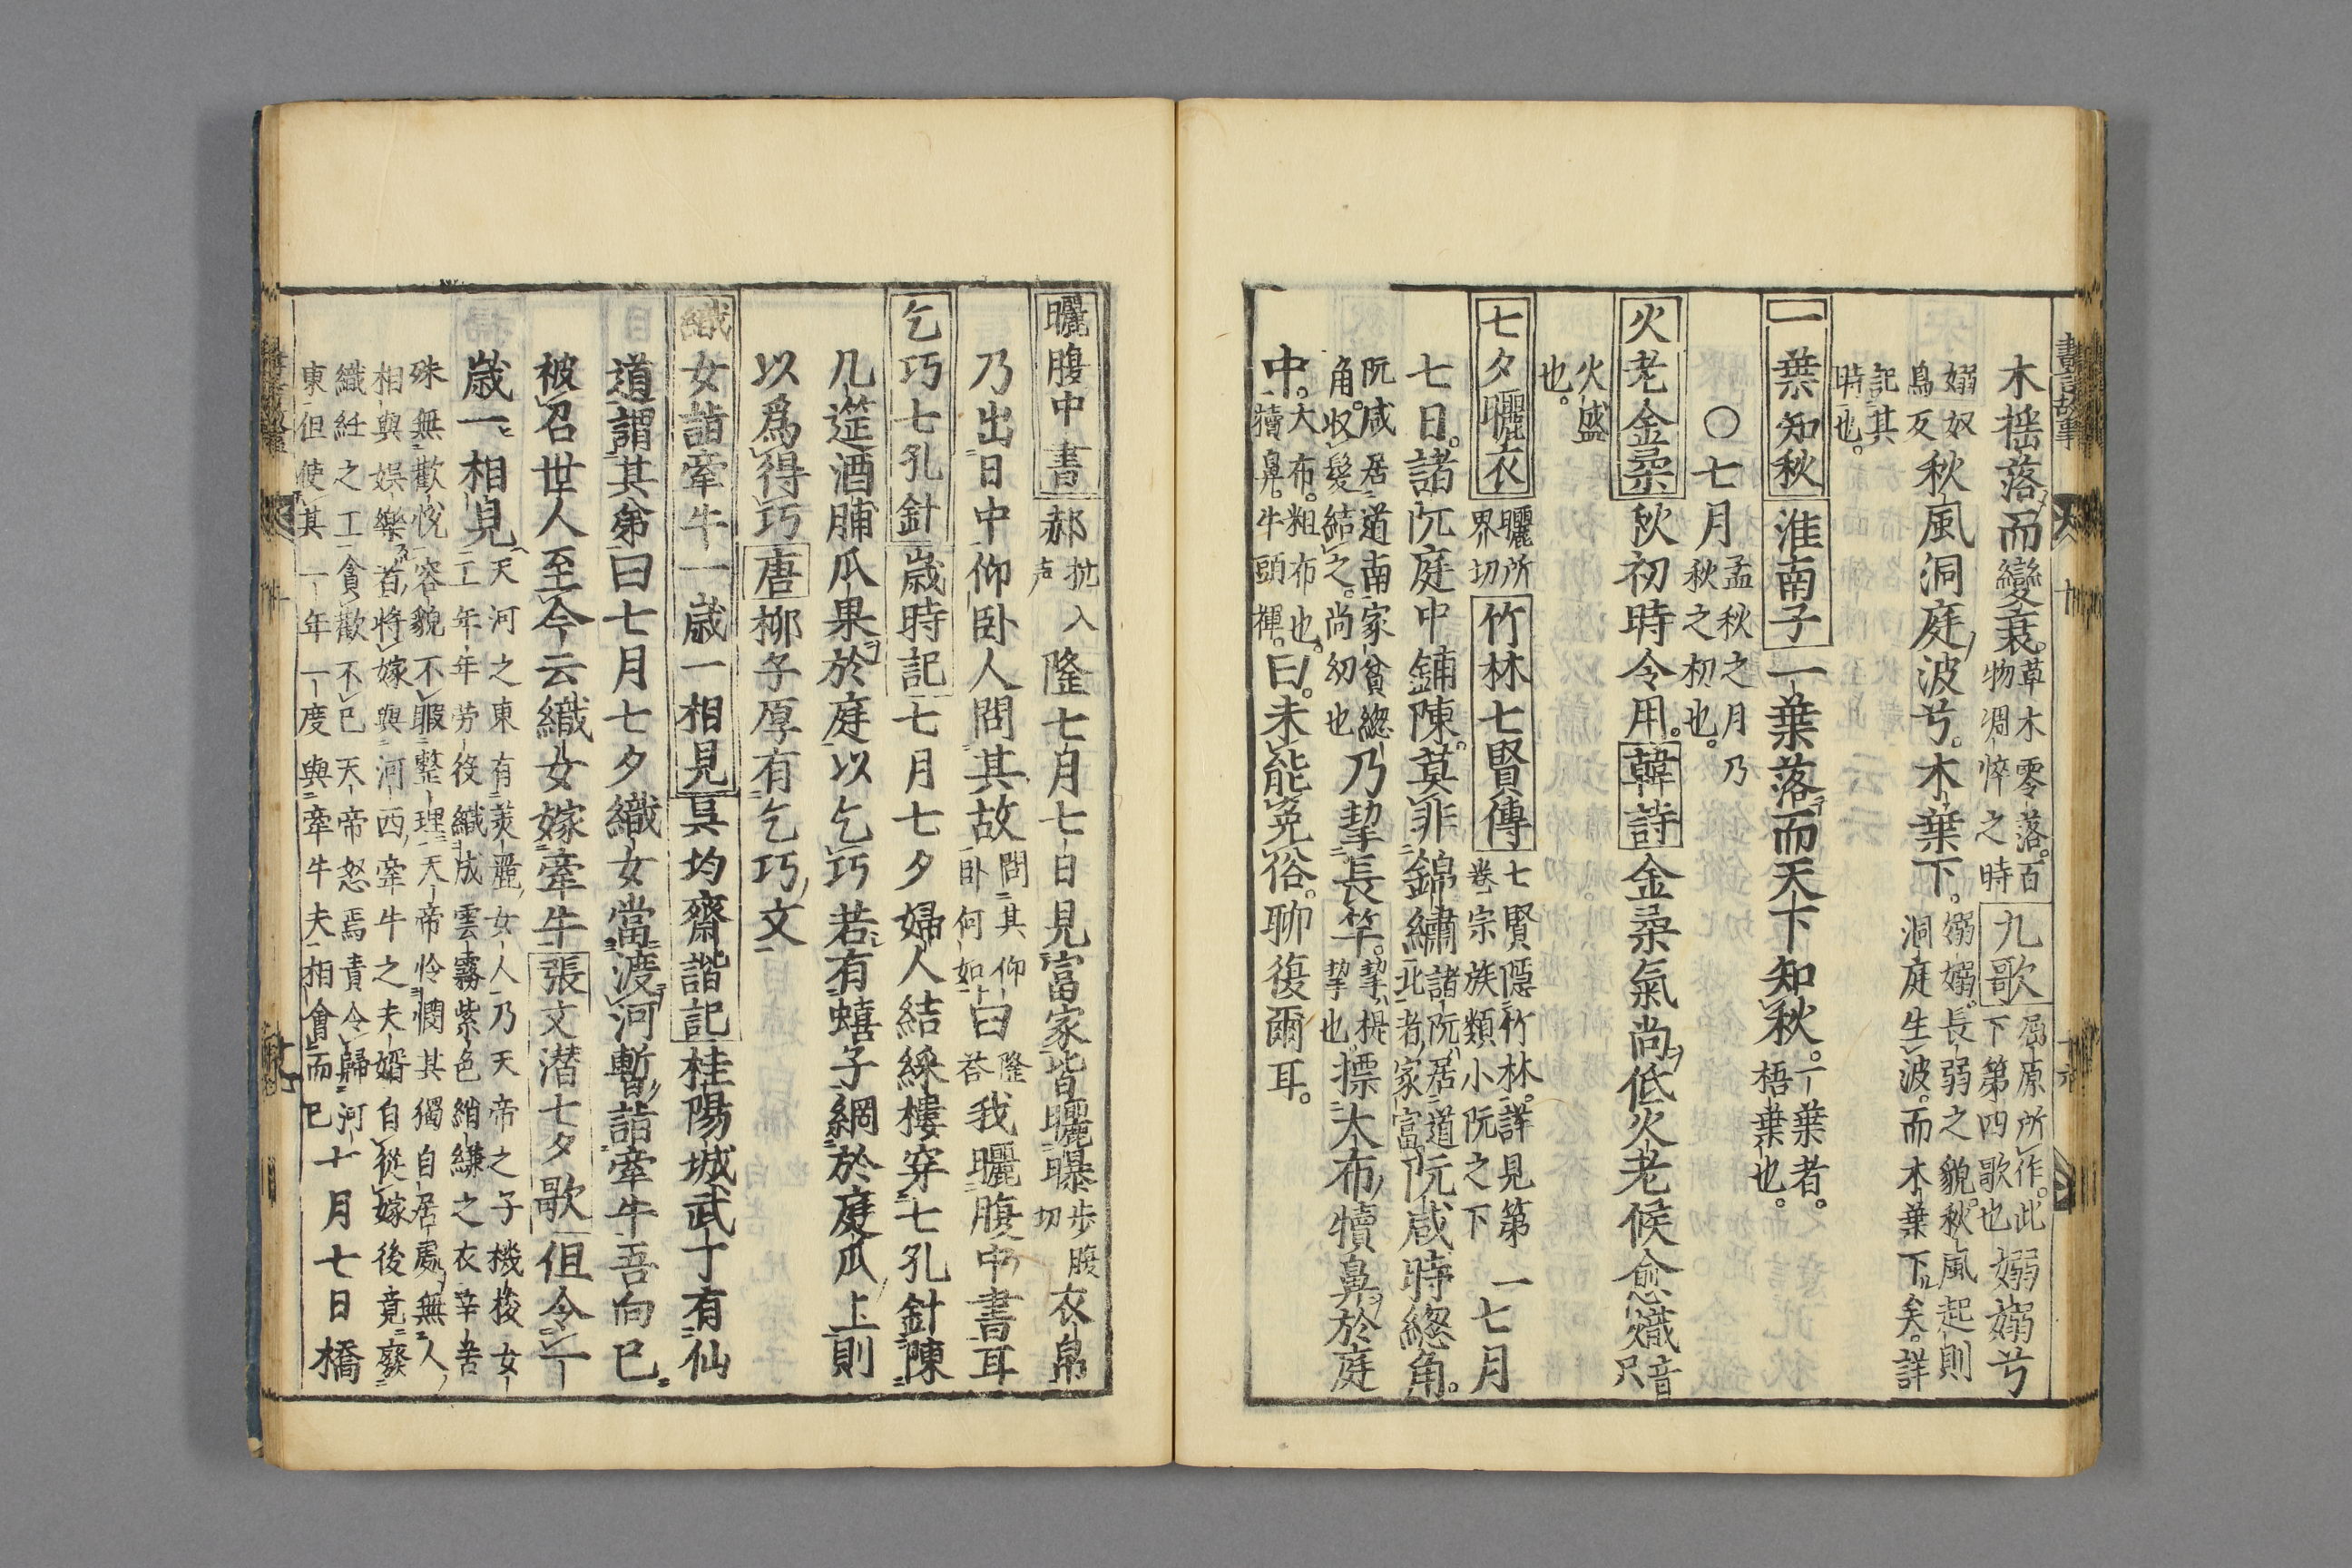 木搖落而變衰。草木零落。百物凋悴之時九歌屈原所作。此下第四歌也嫋嫋兮
嫋奴鳥反秋風洞庭波兮。木葉下。嫋嫋。長弱之貌。秋風起則洞庭生波。而木葉下矣。詳
記其時也。
一葉知秋淮南子一葉落而天下知秋。一葉者。梧葉也。
〇七月孟秋之月乃秋之初也。
火老金柔秋初時令用。韓詩金柔氣尚低火老候愈熾音只
火盛也。
七夕曬衣曬所界切竹林七賢傳七賢隱竹林。詳見第一卷宗族類小阮之下七月
七日。諸阮庭中鋪陳。莫非錦繡諸阮居道北者家富阮咸時緫角。
阮咸居道南家貧緫角。收髮結之。尚幼也乃挈長竿。挈也標大布犢鼻於庭
中。大布。粗布也。犢鼻。牛頭褌。曰。未能免俗。聊復爾耳。
曬腹中書郝入声隆七月七日見富家皆曬曝步腹切衣帛
乃出日中仰卧人問其故問其仰卧何如曰隆荅我曬腹中書耳
乞巧七孔針歲時記七月七夕婦人結綵樓穿七孔針陳
几筵酒脯瓜果於庭以乞巧若有蟢子網於庭瓜上則
以爲得巧唐柳子厚有乞巧文
織女詣牽牛一歲一相見吳均齋諧記桂陽城武丁有仙
道謂其弟曰七月七夕織女當渡河暫詣牽牛吾向已
被召世人至今云織女嫁牽牛張文潜七夕歌但令一
歲一相見天河之東有美麗女人乃天帝之子機梭女工年年勞役織成雲霧紫色綃縑之衣辛苦
殊無歡悅容貌不暇整理天帝怜憫其獨自居處無人相與娯樂首將嫁與河西牽牛之夫婿自從嫁後竟廢
織紝之工貪歡不已天帝怒焉責令歸河東但使其一年一度與牽牛夫相會而已十月七日橋